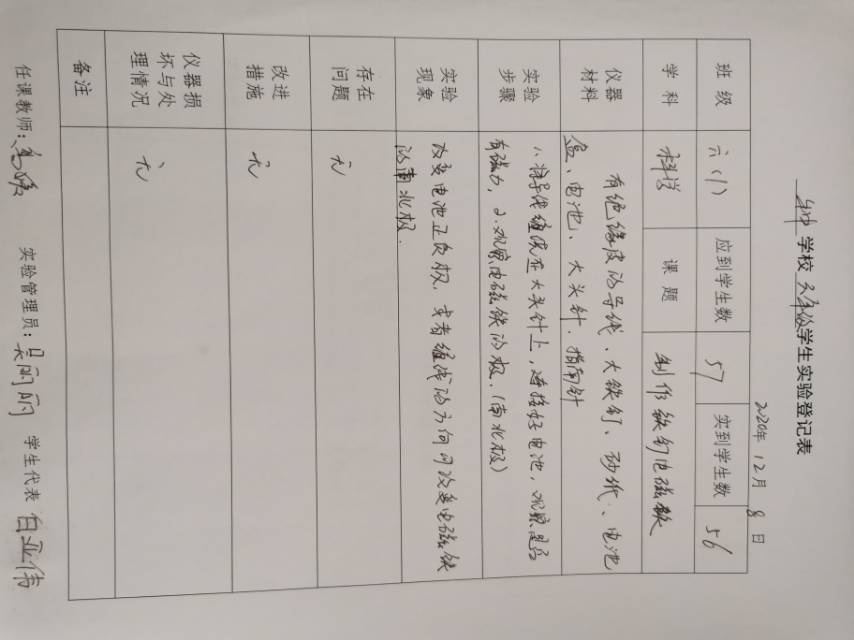 学校 六年级学生实验登记表
2020年 12月 8 日
班级 六(1) 应到学生数 57 实到学生数 56
学科 科学 课题 制作铁钉电磁铁
仪器材料 有绝缘皮的导线、大铁钉、砂纸、电池
盒、电池、大头针、指南针
实验步骤 1、将导线缠绕在大头针上,连接好电池,观察是否
有磁力,2.观察电磁铁的极.(南北极)
实验现象 改变电池正负极,或者缠线的方向可改变电磁铁
的南北极.
存在问题 无
改进措施 无
仪器损坏与处理情况 无
备注
任课教师: 实验管理员:吴丽丽 学生代表 白亚伟